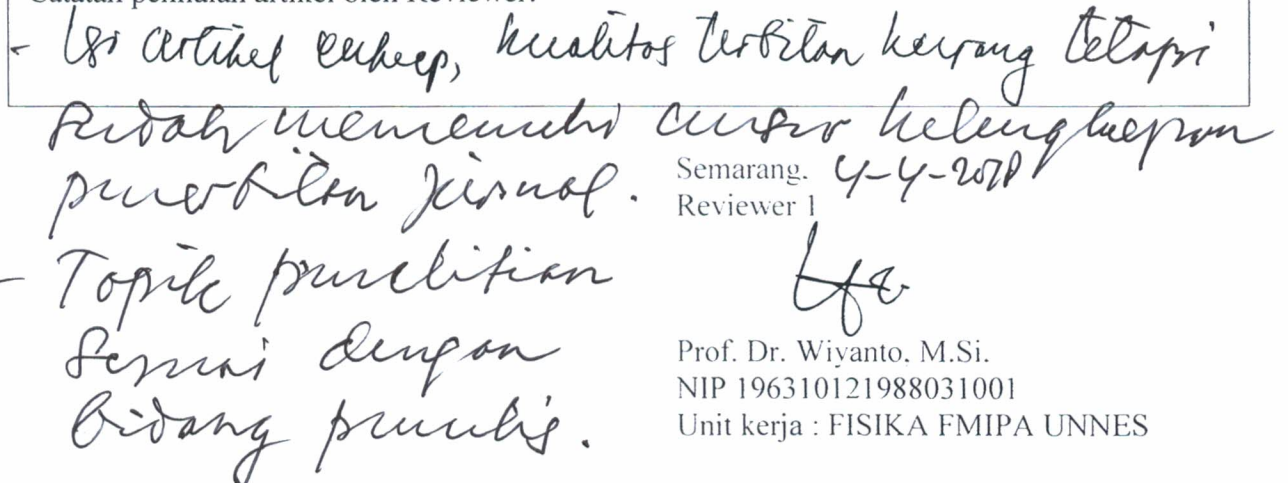 Catatan penilaian artikel oleh Reviewer:
- Isi artikel cukup, kualitas terbitan kurang tetapi
sudah memenuhi unsur kelengkapan
penerbitan jurnal.
- Topik penelitian
sesuai dengan
bidang penulis.
Semarang. 4-4-2018
Reviewer 1
Prof. Dr. Wiyanto. M.Si.
NIP 196310121988031001
Unit kerja : FISIKA FMIPA UNNES